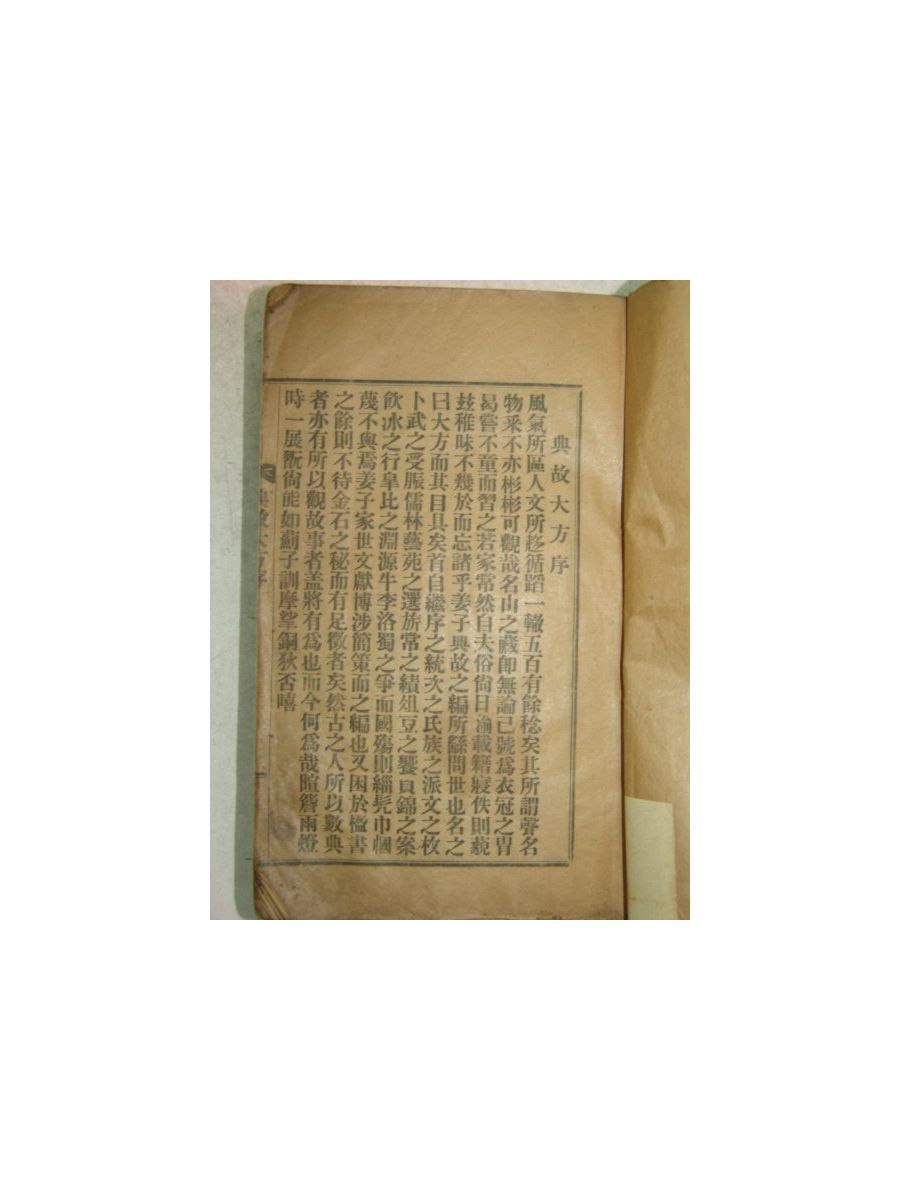 典故大方序
風氣所區人文所趍循蹈一轍五百有餘稔矣其所謂聲名
物采不亦彬彬可觀哉名山之藏卽無論已號爲衣冠之冑
曷嘗不童而習之若家常然自夫俗尙日渝載籍寢佚則藐
玆稚昧不幾於而忘諸乎姜子典故之編所繇問世也名之
曰大方而其目具矣首自繼序之統次之氏族之派文之枚
卜武之受脤儒林藝苑之選旂常之績俎豆之饗負錦之案
飮冰之行皐比之淵源牛李洛蜀之爭而國殤則緇髡巾幗
蔑不與焉姜子家世文獻博涉簡策而之編也又困於檻書
之餘則不待金石之秘而有足徵者矣然古之人所以數典
者亦有所以觀故事者盖將有爲也而今何爲哉暄簷雨燈
時一展翫尙能如薊子訓摩挲銅狄否嘻
典故大方序